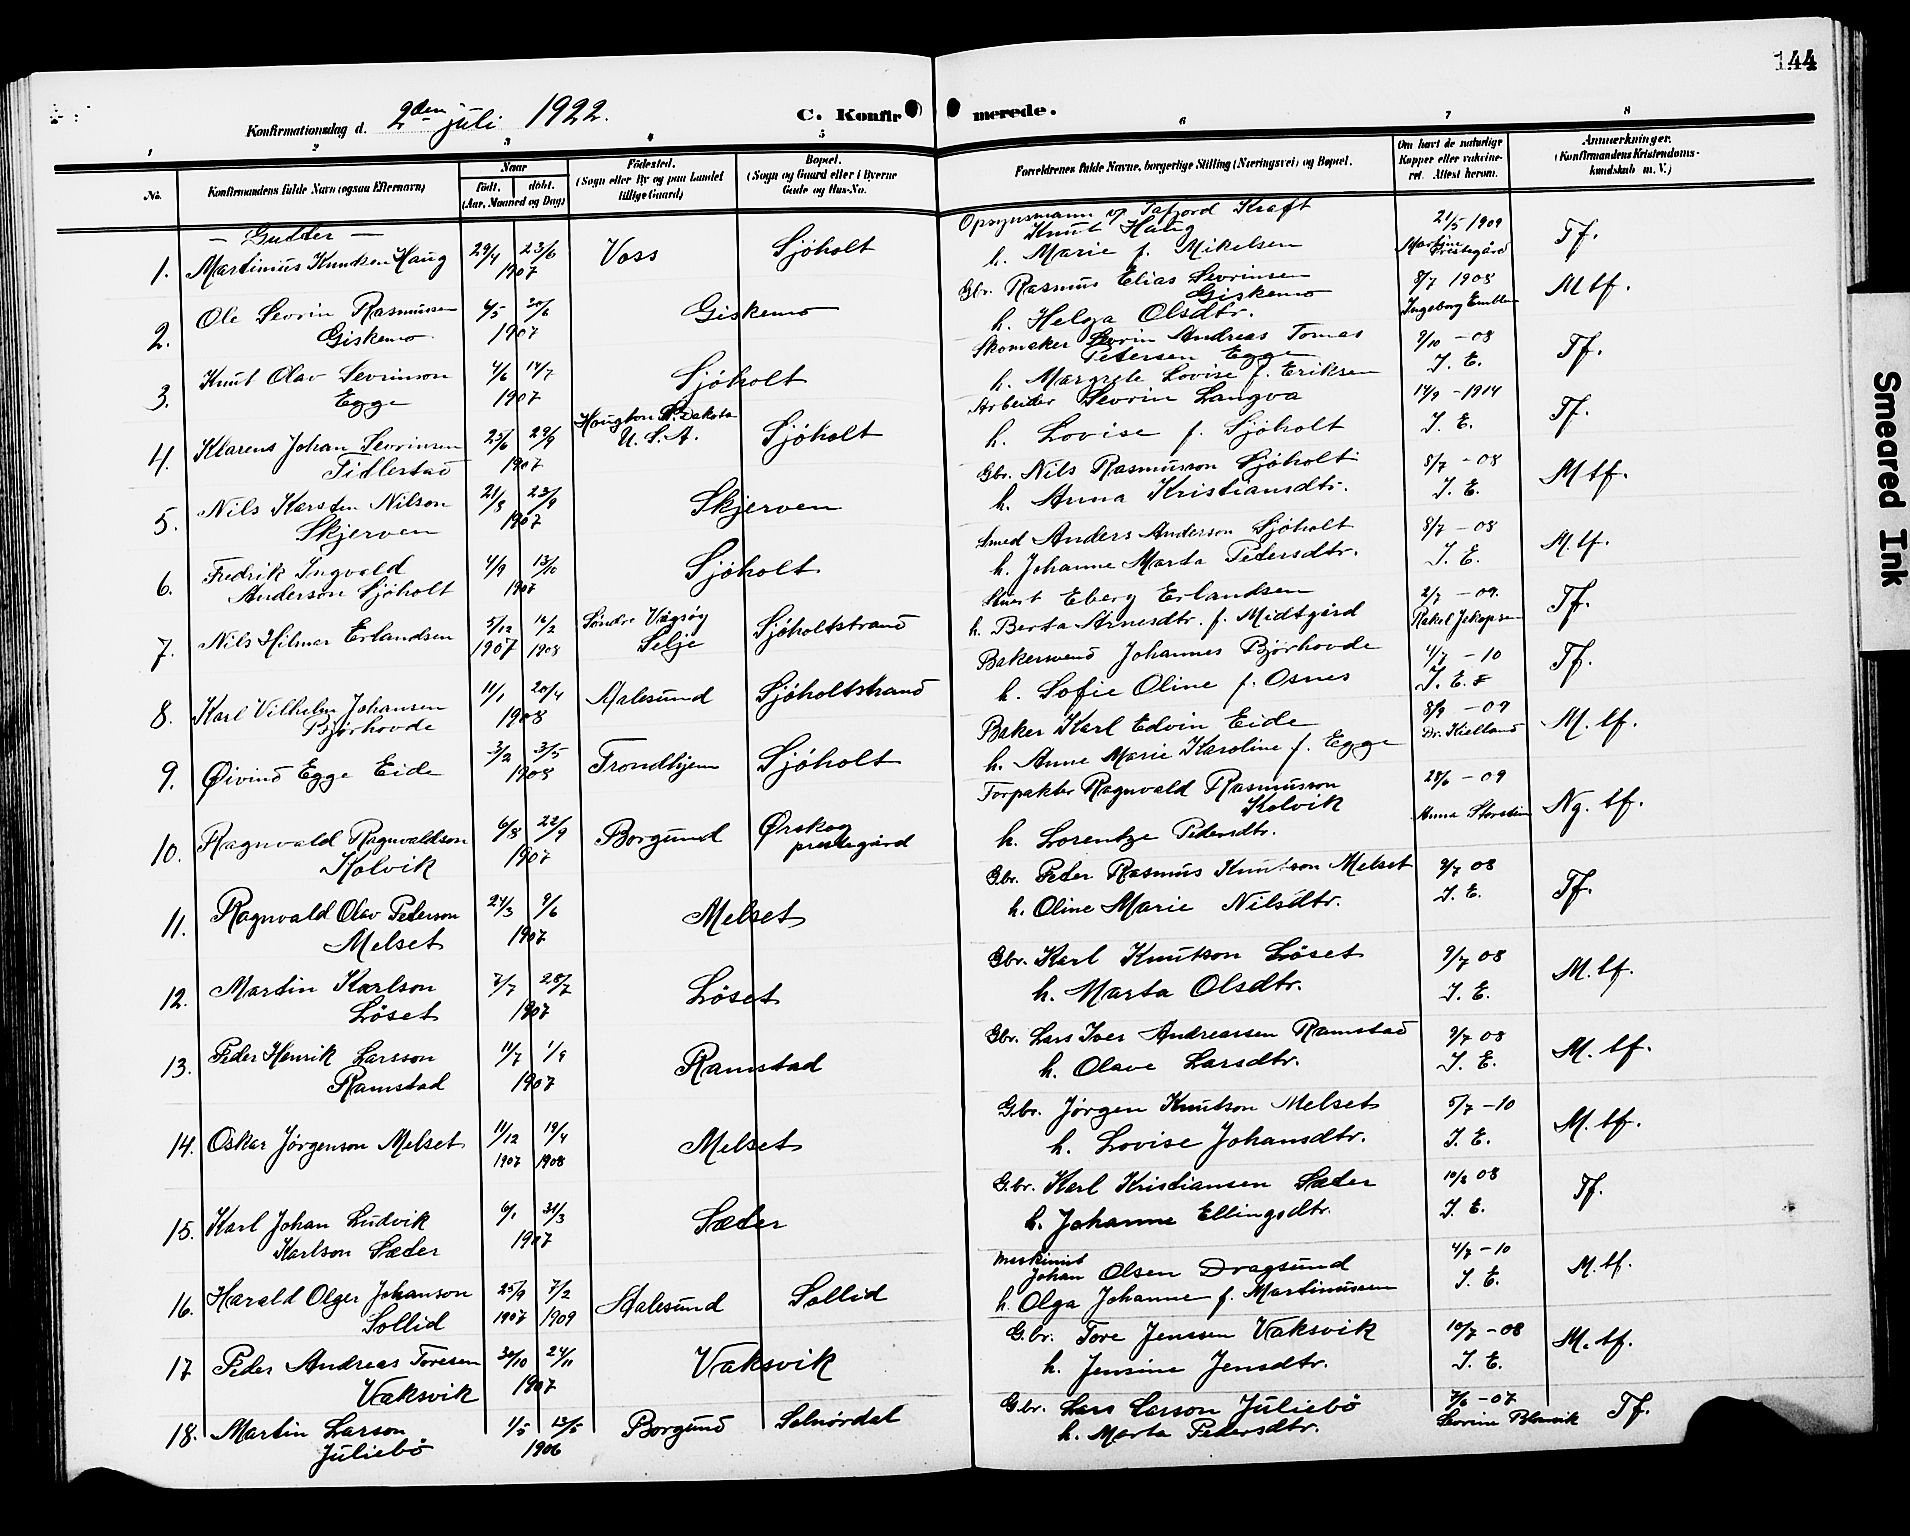 144
Konfirmationsdag d. 2den juli 1922.
C. Konfirmerede.
1 2 3 4 5 6 7 8
No.
Konfirmandens fulde Navn (ogsaa Efternavn)
Naar
født. døbt.
(Aar, Maaned og Dag)
Fødested.
(Sogn eller By og paa Landet
tillige Gaard)
Bopæl.
(Sogn og Gaard eller i Byerne
Gade og Hus-No.
Forældrenes fulde Navne, borgerlige Stilling (Næringsvei) og Bopæl.
Om havt de naturlige
Kopper eller vakcine-
ret. Attest herom.
Anmærkninger.
(Konfirmandens Kristendoms-
kundskab m. V.)
- Gutter -
1. Martinius Knutsen Haug 29/4 23/6 1907 Voss Sjöholt
Opsynsmann v/ Tafjord Kraft
Knut Haug
h. Marie f. Mikelsen
21/5 1909
Tf.
2. Ole Sevrin Rasmussen
Giskemo
4/5 30/6 1907 Giskemo
Gbr. Rasmus Elias Sevrinsen
Giskemo
h. Helga Olsdtr.
8/7 1908
Ingeborg Emblem
M tf.
3. Knut Olav Sevrinson
Egge
4/6 14/7 1907 Sjöholt
Skomaker Sevrin Andreas Tomas
Petersen Egge
h. Margrete Lovise f. Eriksen
9/10 - 08
I. E.
Tf.
4. Klarens Johan Sevrinsen
Tidlestad
25/6 29/9 1907
Houghton N. Dakota
U. S. A.
Sjöholt
Arbeider Sevrin Langva
h. Lovise f. Sjöholt
14/9 - 1914
I. E.
Tf.
5. Nils Karsten Nilson
Skjerven
21/8 23/9 1907 Skjerven
Gbr. Nils Rasmusson Sjöholt
h. Anna Kristiansdtr.
8/7 - 08
I. E.
M tf.
6. Fredrik Ingvald
Anderson Sjöholt
4/9 13/10 1907 Sjöholt
Smed Anders Anderson Sjöholt
h. Johanne Marta Petersdtr.
8/7 - 08
I. E.
M. tf.
7. Nils Hilmar Erlandsen 5/12 1907 16/2 1908
Söndre Vågsöy
Selje
Sjöholtstrand
Eberg Erlandsen
h. Berta Arnesdtr. f. Midtgård
2/7 - 09.
Rakel Jakopsen
Tf.
8. Karl Vilhelm Johansen
Bjørhovde
11/1 20/4 1908 Aalesund Sjöholtstrand
Bakersvend Johannes Bjørhovde
h. Sofie Oline f. Osnes
4/7 - 10
I. E.
Tf.
9. Øivind Egge Eide 3/2 3/5 1908 Trondhjem Sjöholt
Baker Karl Edvin Eide
h. Anne Marie Karoline f. Egge
8/9 - 09
Dr. Kielland
M. tf.
10. Ragnvald Ragnvaldson
Kolvik
6/8 22/9 1907 Borgund
Ørskog
prestegård
Forpakter Ragnvald Rasmusson
Kolvik
h. Lorentze Pedersdtr.
28/6 - 09
Anna Storstein
Ng. tf.
11. Ragnvald Olav Peterson
Melset
24/3 9/6 1907 Melset
Gbr. Peter Rasmus Knutson Melset
h. Oline Marie Nilsdtr.
9/7 08
I. E.
Tf.
12. Martin Karlson
Löset
7/7 28/7 1907 Löset
Gbr. Karl Knutson Löset
h. Marta Olsdtr.
9/7 08
I. E.
M. tf.
13. Peder Henrik Larsson
Ramstad
11/7 1/9 1907 Ramstad
Gbr. Lars Iver Andreassen Ramstad
h. Olave Larsdtr.
9/7 08
I. E.
M. tf.
14. Oskar Jørgenson Melset 11/12 1907 19/4 1908 Melset
Gbr. Jørgen Knutson Melset
h. Lovise Johansdtr.
5/7 - 10
I. E.
M. tf.
15. Karl Johan Ludvik
Karlson Sæter
6/1 31/3 1907 Sæter
G.br. Karl Kristiansen Sæter
h. Johanne Ellingsdtr.
10/8 08
I. E.
Tf.
16. Harald Olger Johanson
Sollid
25/9 1907 7/2 1909 Aalesund Sollid
Maskinist
Johan Olsen Dragsund
h. Olga Johanne f. Martinussen
4/7 - 10
I. E.
M. tf.
17 Peder Andreas Toresen
Vaksvik
30/10 24/11 1907 Vaksvik
G.br. Tore Jenssen Vaksvik
h. Jensine Jensdtr.
10/7 - 08
I. E.
M. tf.
18. Martin Larson
Juliebö
1/5 13/5 1906 Borgund Solnørdal
G.br. Lars Larson Juliebö
h. Marta Pedersdtr.
7/6 - 07
Tf.
Smeared Ink